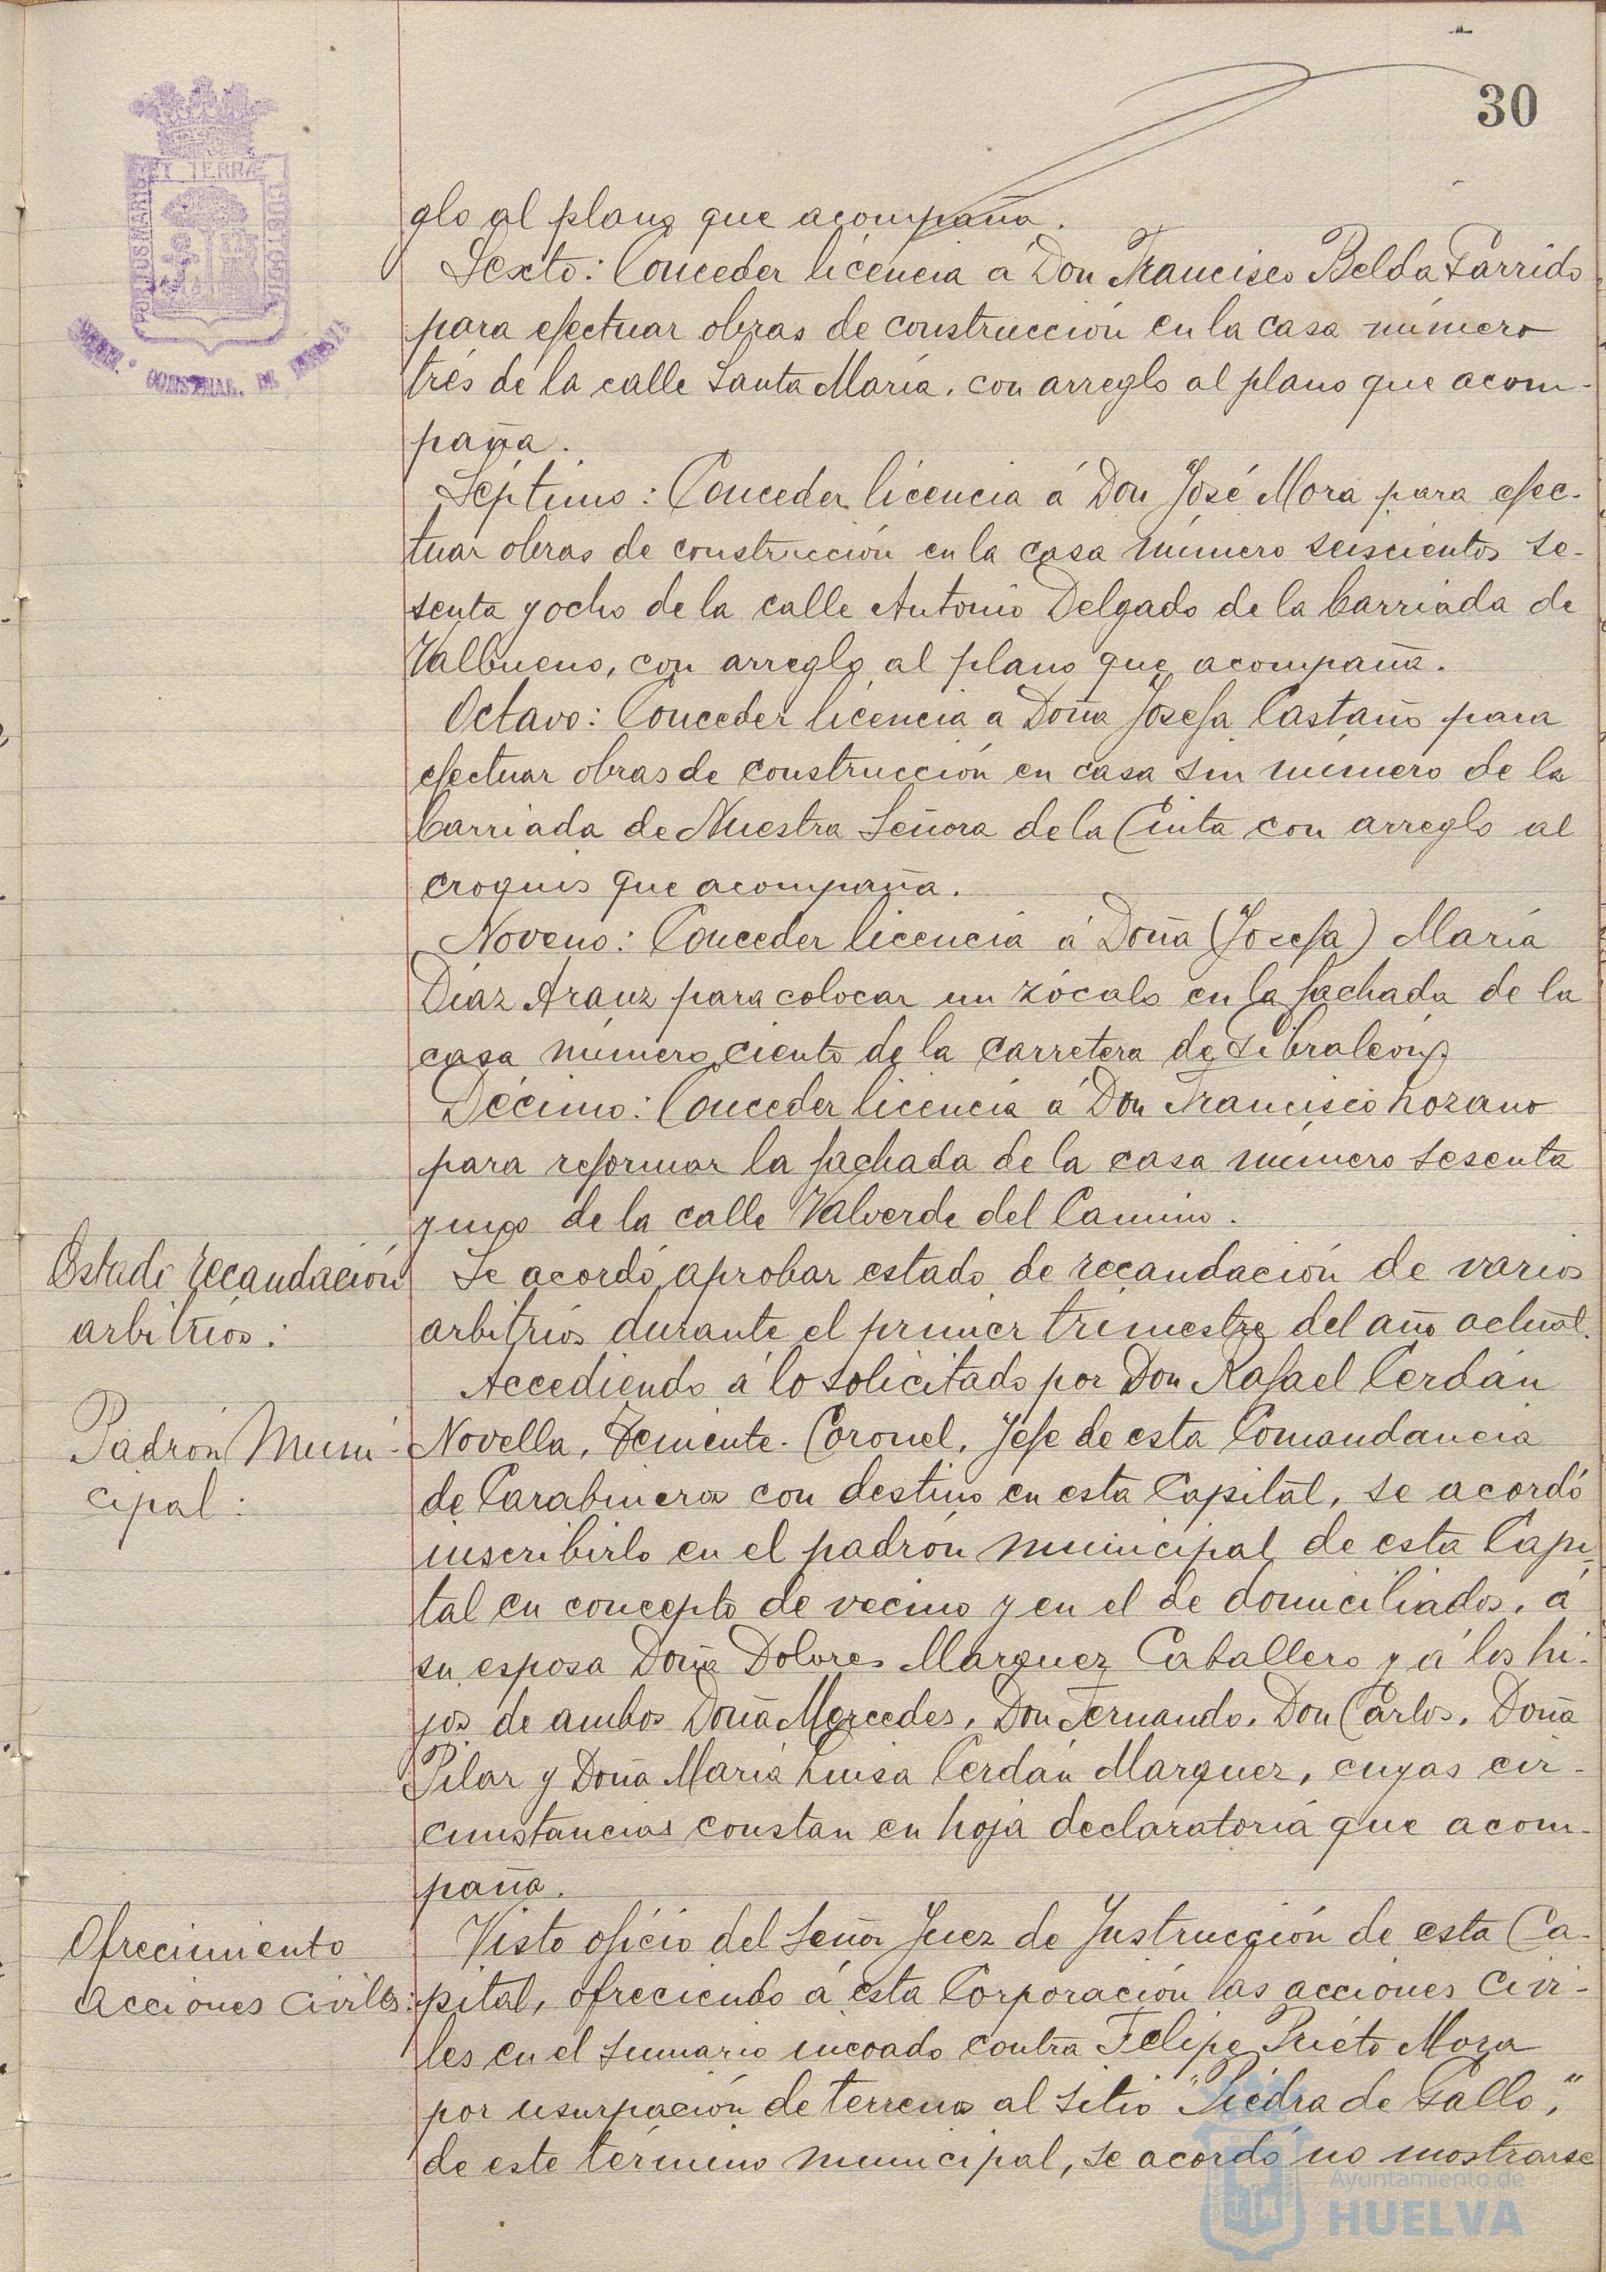 30
PORTUS MARIS ET TERRÆ CUSTODIA
glo al plano que acompaña.
Sexto: Conceder licencia á Don Francisco Belda Garrido
para efectuar obras de construcción en la casa número
trés de la calle Santa María, con arreglo al plano que acom-
paña.
Séptimo: Conceder licencia á Don José Mora para efec-
tuar obras de construcción en la casa número seiscientos se-
senta y ocho de la calle Antonio Delgado de la barriada de
Valbueno, con arreglo al plano que acompaña.
Octavo: Conceder licencia a Doña Josefa Castaño para
efectuar obras de construcción en casa sin número de la
barriada de Nuestra Señora de la Cinta con arreglo al
croquis que acompaña.
Noveno: Conceder licencia á Doña (Josefa) María
Díaz Arauz para colocar un zócalo en la fachada de la
casa número ciento de la carretera de Gibraleón.
Décimo: Conceder licencia á Don Francisco Lozano
para reformar la fachada de la casa número sesenta
y uno de la calle Valverde del Camino.
Estado recaudación
arbitrios:
Se acordó aprobar estado de recaudación de varios
arbitrios durante el primer trimestre del año actual.
Padrón Muni-
cipal:
Accediendo á lo solicitado por Don Rafael Cerdán
Novella, Teniente. Coronel, Jefe de esta Comandancia
de Carabineros con destino en esta Capital, se acordó
inscribirlo en el padrón municipal de esta Capi-
tal en concepto de vecino y en el de domiciliados, á
su esposa Doña Dolores Marquez Caballero y á los hi-
jos de ambos Doña Mercedes, Don Fernando, Don Carlos, Doña
Pilar y Doña María Luisa Cerdán Marquez, cuyas cir-
cunstancias constan en hoja declaratoria que acom-
paña.
Ofrecimiento
acciones civiles:
Visto oficio del Señor Juez de Instrucción de esta Ca-
pital, ofreciendo á esta Corporación las acciones civi-
les en el sumario incoado contra Felipe Prieto Mora
por usurpación de terreno al sitio "Piedra de Gallo",
de este término municipal, se acordó no mostrarse
Ayuntamiento de
HUELVA